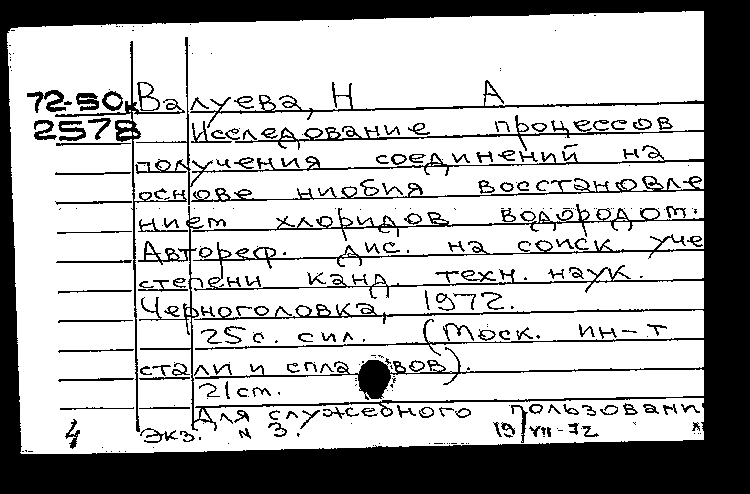 72-50к Валуева, Н А
2578 Исследование процессов
получения соединений на
основе ниобия восстановле
нием хлоридов водородом:
Автореф. дис. на соиск. уче
степени канд. техн. наук.
Черноголовка, 1972.
25 с. с ил. (Моск. ин-т
стали и сплавов).
21 см.
Для служебного пользовани
4 Экз. № 3. 19/VII-72